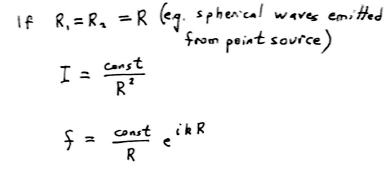 If R₁ = R₂ = R (eg. spherical waves emitted
from point source)
I = const / R²
f = const / R e^{ikR}